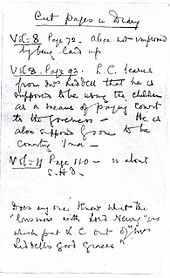 Cut Pages in Diary
Vol. 8 Page 72. Alice not improved
by being laid up
Vol 8. Page 92. L.C. learns
from Mrs Liddell that he is
supposed to be using the children
as a means of paying court
to the governess — He is
also supposed by some to be
courting Ina —
Vol: 11 Page 110 is about
E.H.D.
Does any one know what the
"business with Lord Newry" was
which put L C out of "Mrs
Liddell's good graces"